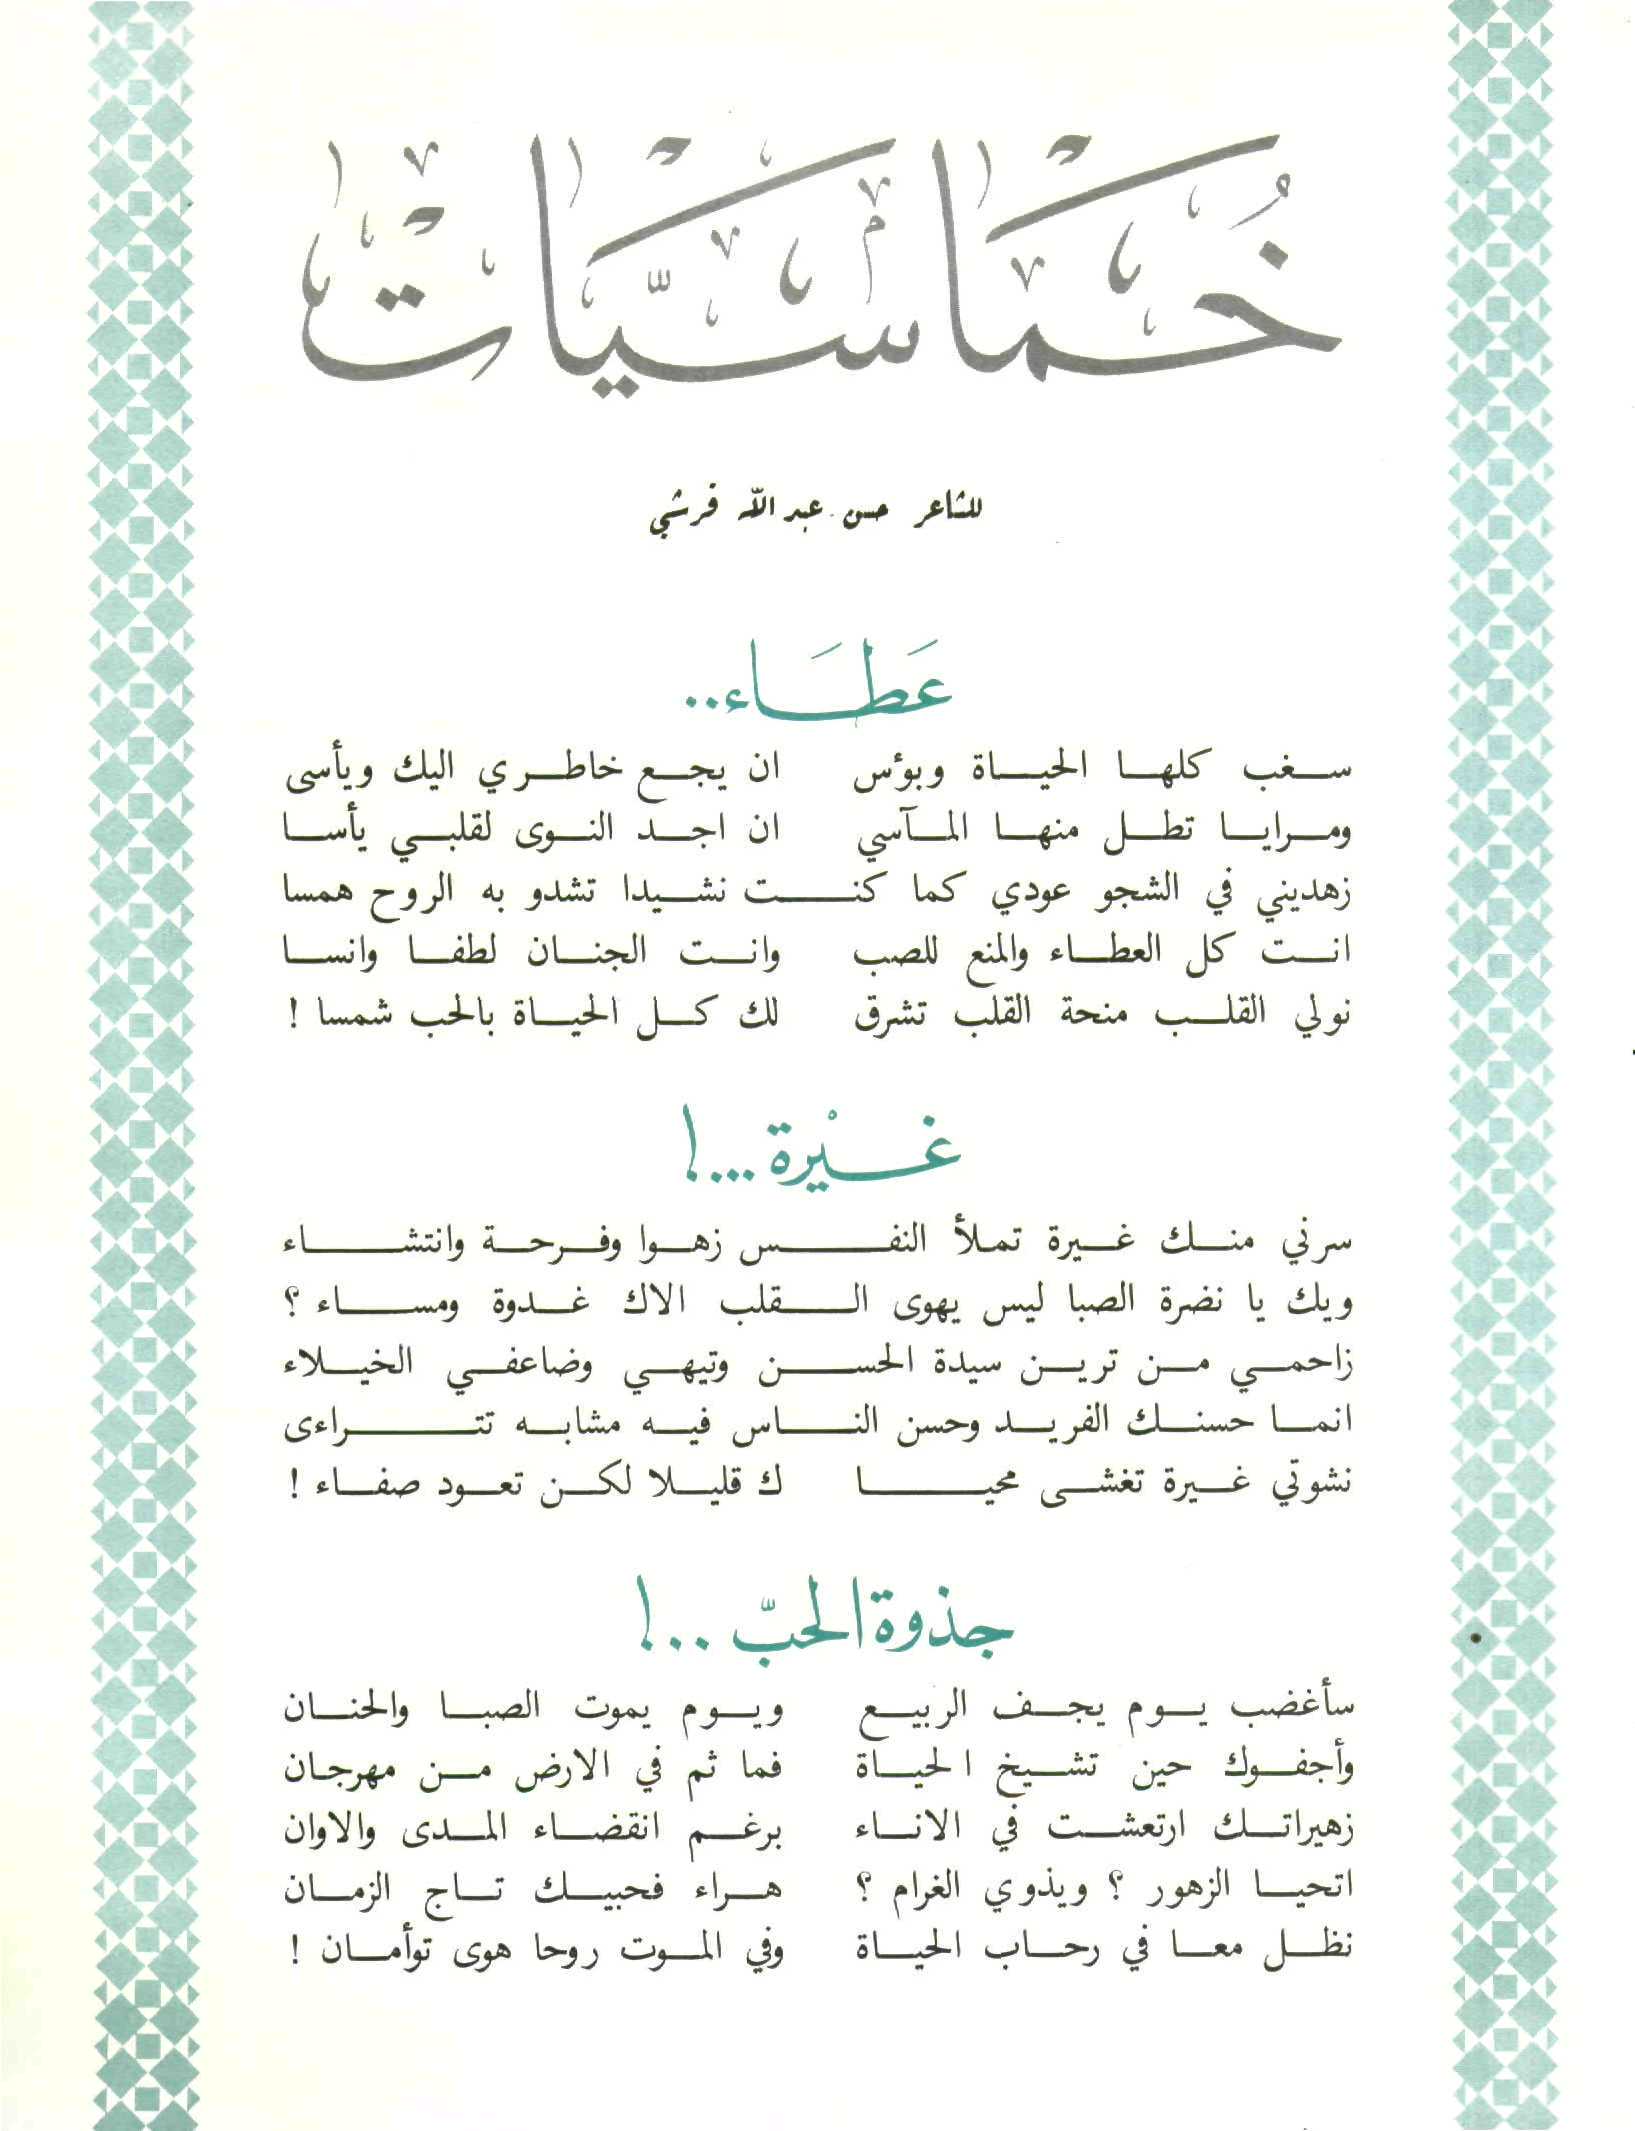 خُمَاسِيَّات
للشاعر حسن عبد الله قرشي
عَطَاء..
سغب كلها الحياة وبؤس ان يجع خاطري اليك ويأسى
ومرايا تطل منها المآسي ان اجد النوى لقلبي يأسا
زهديني في الشجو عودي كما كنت نشيدا تشدو به الروح همسا
انت كل العطاء والمنع للصب وانت الجنان لطفا وانسا
نولي القلب منحة القلب تشرق لك كل الحياة بالحب شمسا !
غيْرة...!
سرني منك غيرة تملأ النفس زهوا وفرحة وانتشاء
ويك يا نضرة الصبا ليس يهوى القلب الاك غدوة ومساء ؟
زاحمي من ترين سيدة الحسن وتيهي وضاعفي الخيلاء
انما حسنك الفريد وحسن الناس فيه مشابه تتراءى
نشوتي غيرة تغشى محيا ك قليلا لكن تعود صفاء !
جذوة الحبّ ..!
سأغضب يوم يجف الربيع ويوم يموت الصبا والحنان
وأجفوك حين تشيخ الحياة فما ثم في الارض من مهرجان
زهيراتك ارتعشت في الاناء برغم انقضاء المدى والاوان
اتحيا الزهور ؟ ويذوي الغرام ؟ هراء فحبيك تاج الزمان
نظل معا في رحاب الحياة وفي الموت روحا هوى توأمان !